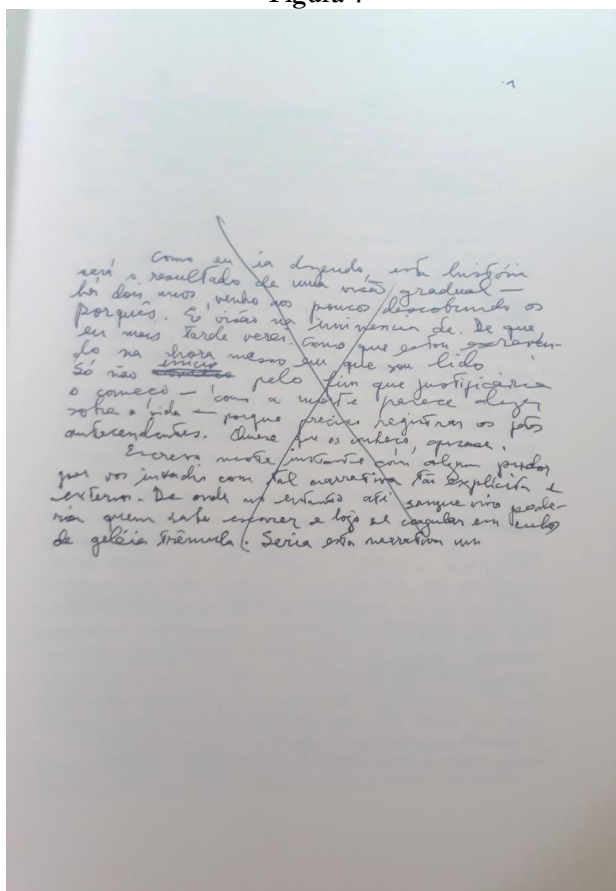 Figura 4
1
Como eu ia dizendo, esta história
será o resultado de uma visão gradual —
há dois anos venho aos pouco descobrindo os
porquês. É visão na iminência de. De que
eu mais tarde verei. Como que estou escreven-
do na hora mesmo em que sou lido
Só não inicio pelo fim que justificaria
o começo — como a morte parece dizer
sobre a vida — porque preciso registrar os fatos
antecendentes. Quase que os conheço, quase.
Escrevo neste instante com algum pudor
por vos invadir com tal narrativa tão explícita e
externa. De onde no entanto até sangue vivo pode-
ria quem sabe escorrer e logo se coagular em cubos
de geléia trêmula. Seria esta narrativa um